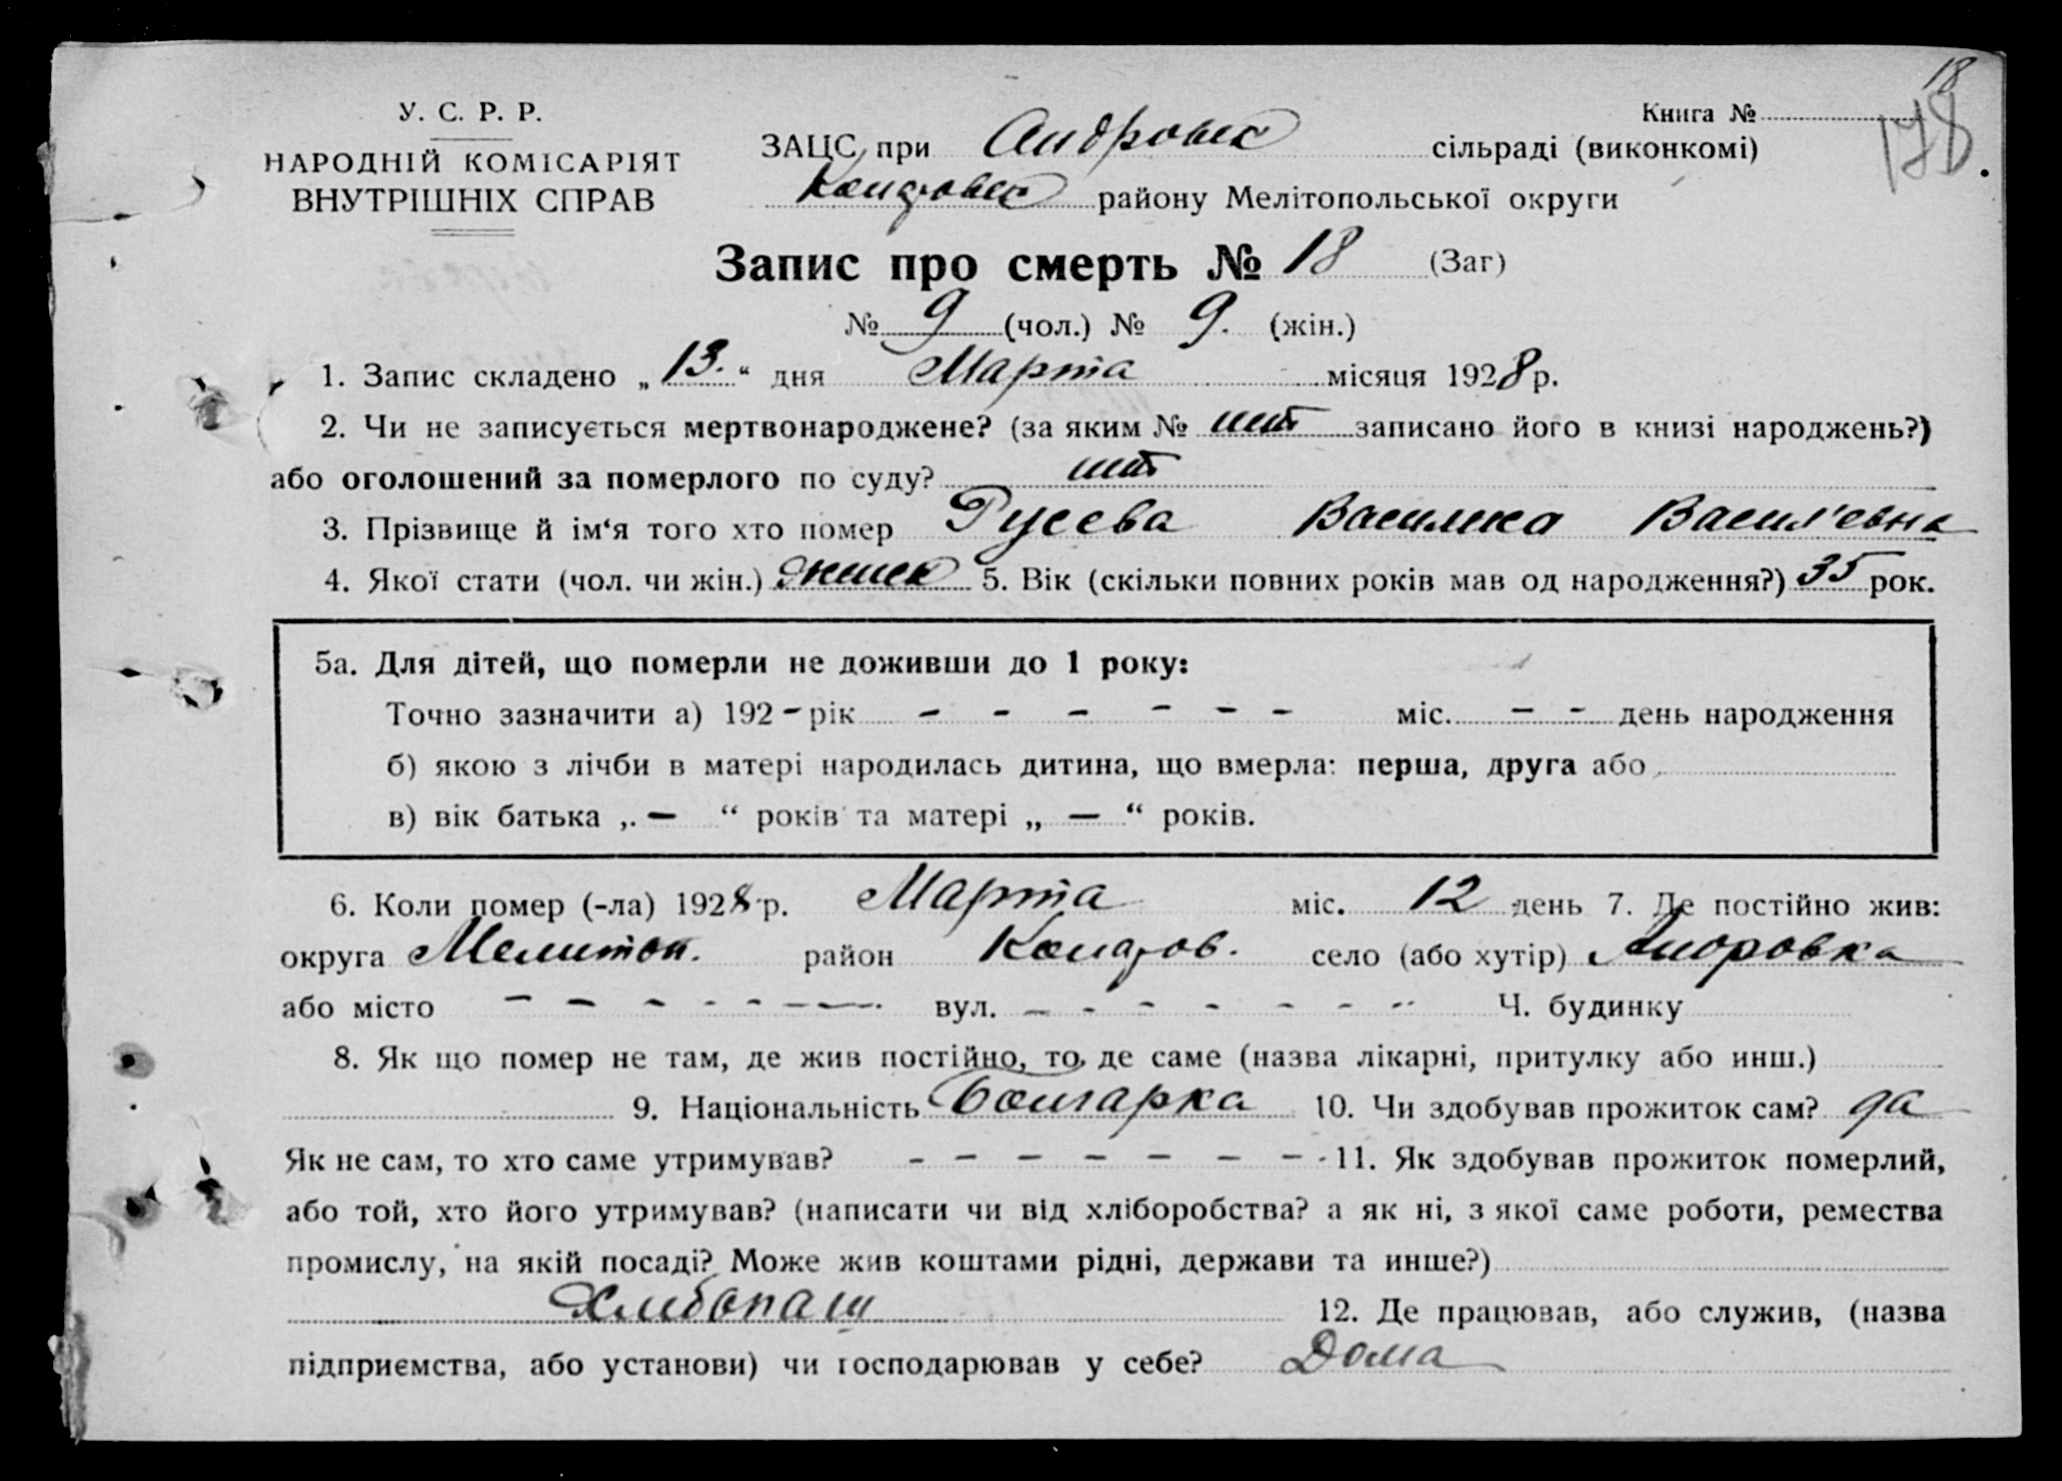 18
У. С. Р. Р.
Книга №
178
НАРОДНІЙ КОМІСАРІЯТ
ВНУТРІШНІХ СПРАВ
ЗАЦС при Андровск сільраді (виконкомі)
району Мелітопольської округи
Запис про смерть № 18 (Заг)
№ 9 (чол.) № 9. (жін.)
1. Запис складено „ 13. “ дня Марта місяця 1928 р.
2. Чи не записується мертвонароджене? (за яким № нит записано його в книзі народжень?)
або оголошений за померлого по суду? нит
3. Прізвище й ім‘я того хто помер Русева Василка Васил'евна
4. Якої стати (чол. чи жін.) женск 5. Вік (скільки повних років мав од народження?) 35 рок.
5а. Для дітей, що померли не доживши до 1 року:
Точно зазначити а) 192 - рік - - - - - - міс. - - день народження
б) якою з лічби в матері народилась дитина, що вмерла: перша, друга або
в) вік батька „ — “ років та матері „ — “ років.
6. Коли помер (-ла) 1928 р. Марта міс. 12 день 7. Де постійно жив:
округа Мелитоп. район село (або хутір) Андровка
або місто - - - - - - - вул. - - - - - - - Ч. будинку
8. Як що помер не там, де жив постійно, то де саме (назва лікарні, притулку або инш.)
9. Національність Болгарка 10. Чи здобував прожиток сам? да
Як не сам, то хто саме утримував? - - - - - - - - 11. Як здобував прожиток померлий,
або той, хто його утримував? (написати чи від хліборобства? а як ні, з якої саме роботи, ремества
промислу, на якій посаді? Може жив коштами рідні, держави та инше?)
Хлибопаш 12. Де працював, або служив, (назва
підприємства, або установи) чи господарював у себе? Дома